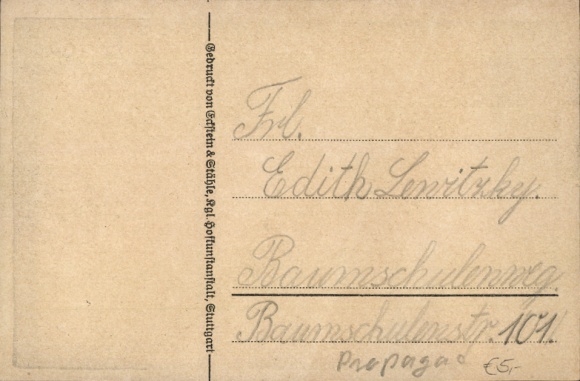 Gedruckt von Eckstein & Stähle, Kgl. Hofkunstanstalt, Stuttgart
Frl.
Edith Lewitzky.
Baumschulenweg.
Baumschulenstr. 101.
Propaga
€5,-